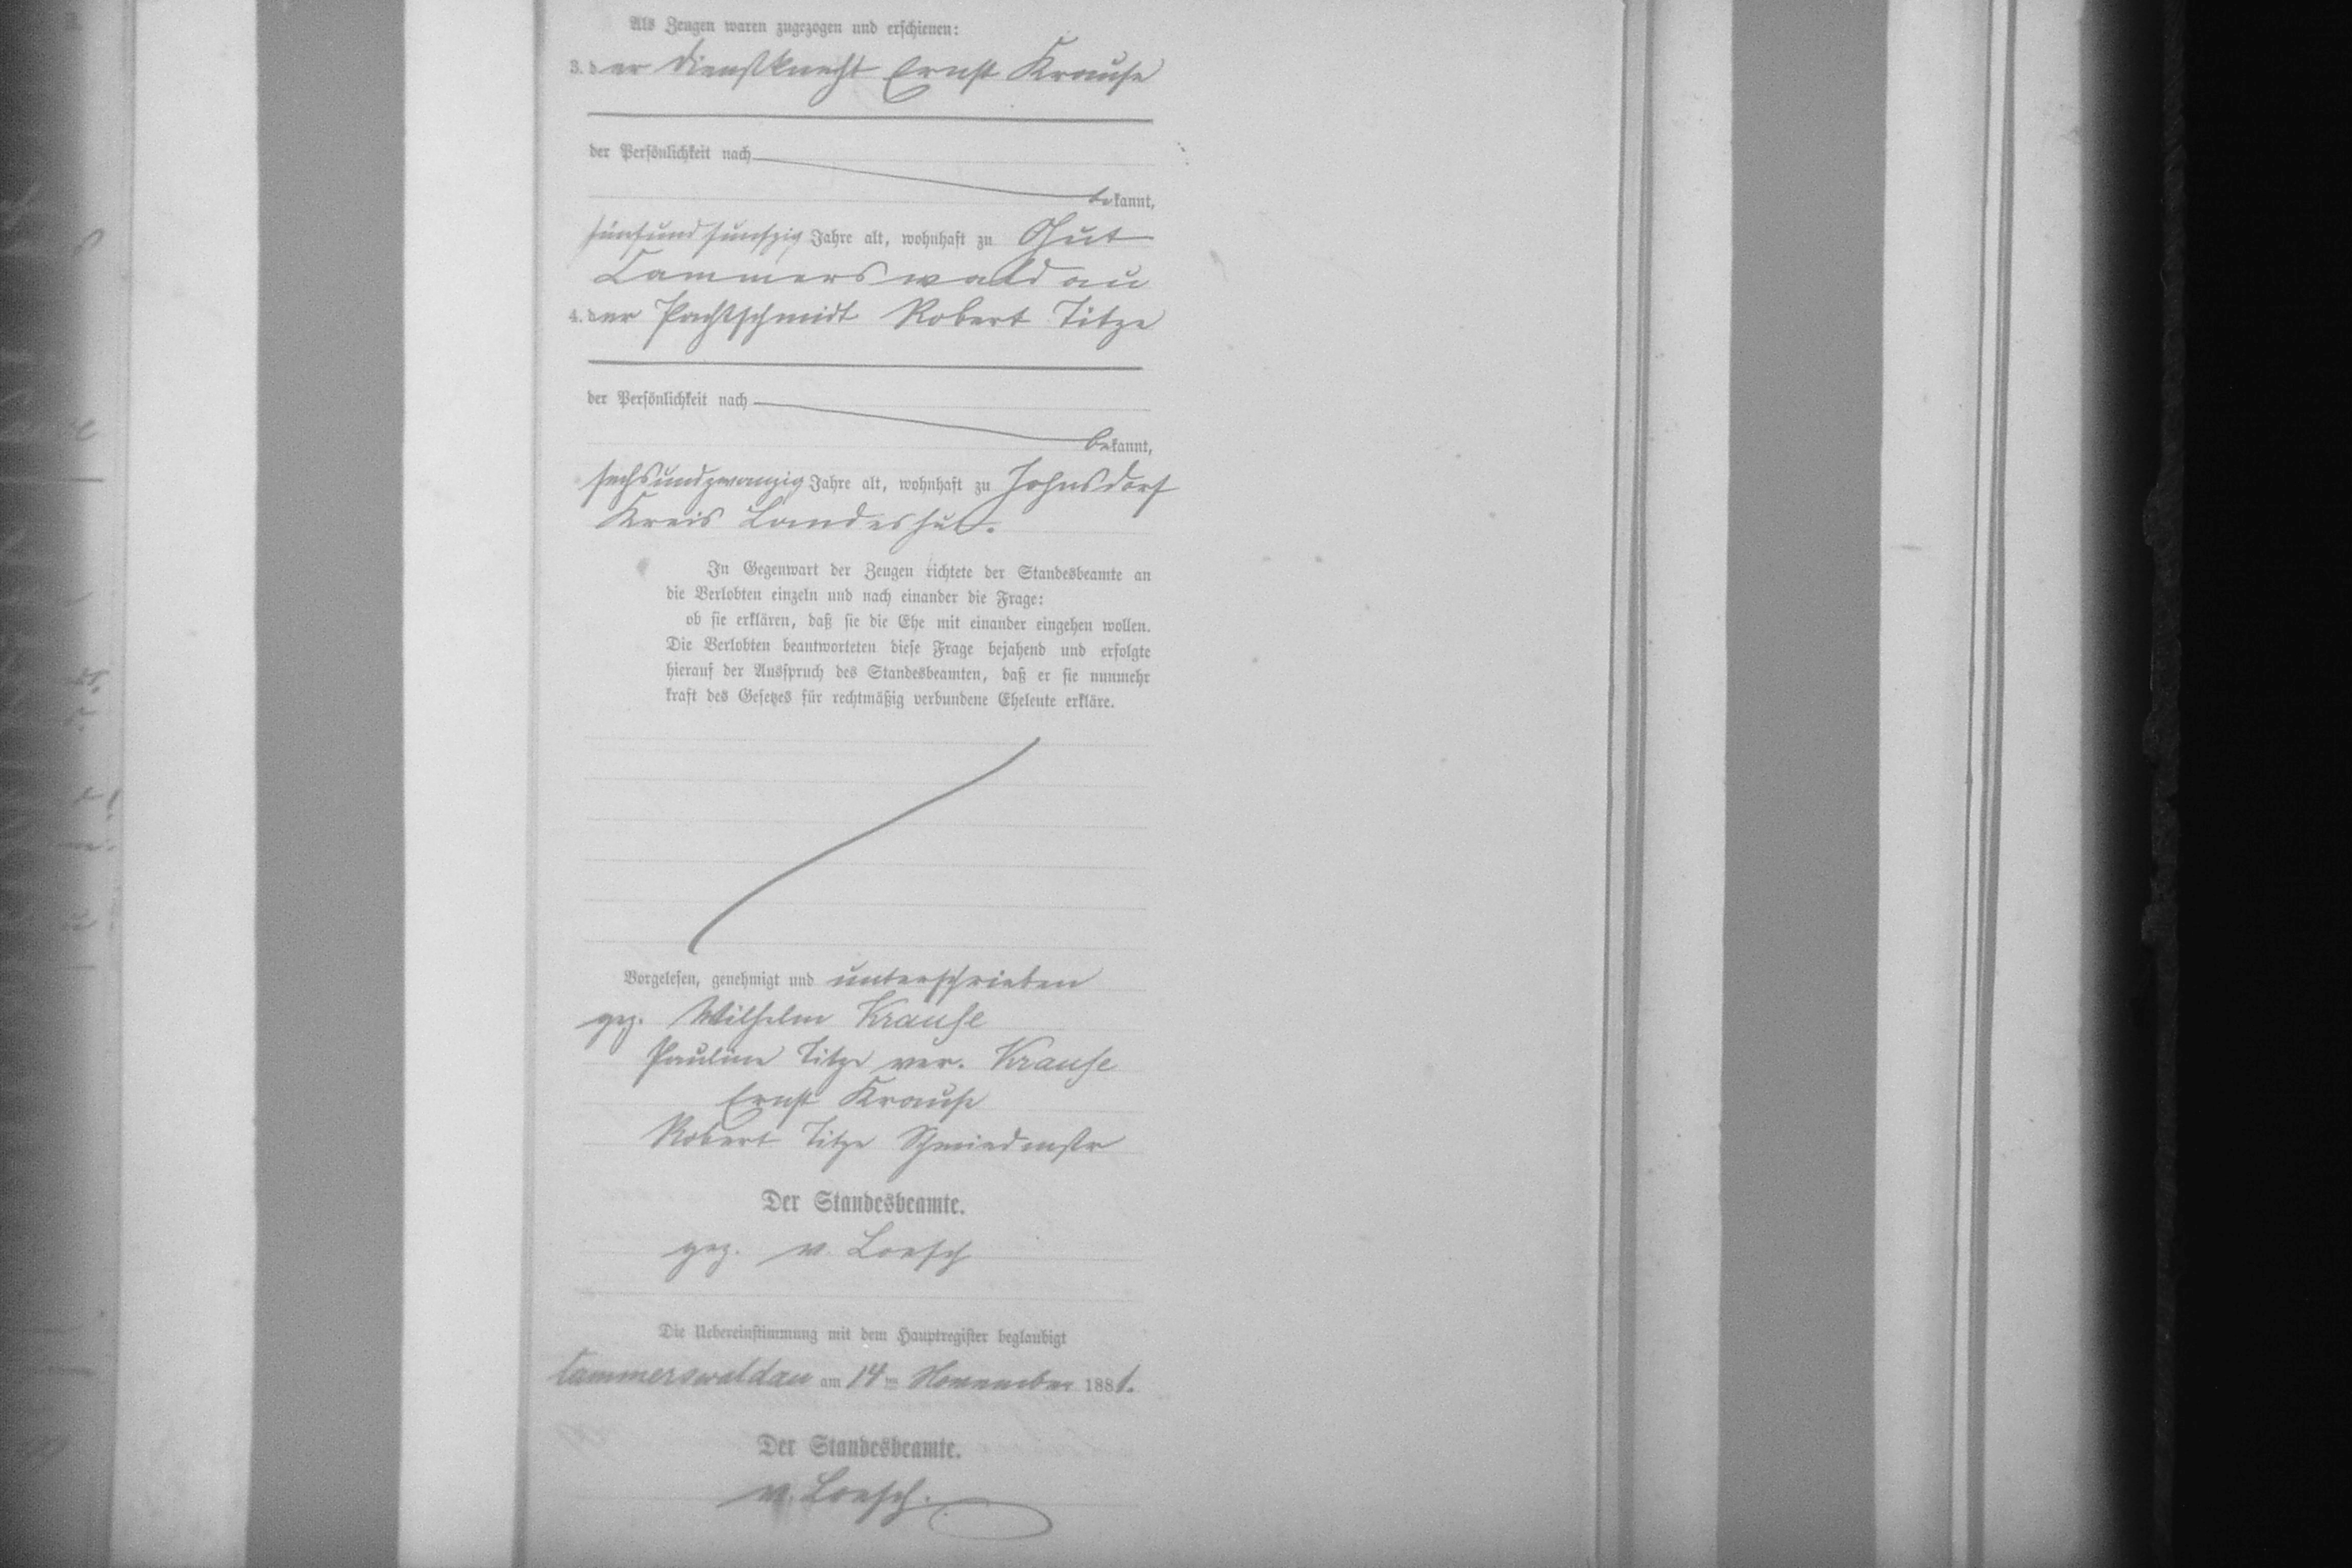 Als Zeugen waren zugezogen und erschienen:
3. der Dienstknecht Ernst Krause
der Persönlichkeit nach
bekannt,
fünfundfunfzig Jahre alt, wohnhaft zu Gut
Cammerswaldau
4. der Pachtschmidt Robert Titze
der Persönlichkeit nach
bekannt,
sechsundzwanzig Jahre alt, wohnhaft zu Johnsdorf
Kreis Landeshut.
In Gegenwart der Zeugen richtete der Standesbeamte an
die Verlobten einzeln und nach einander die Frage:
ob sie erklären, daß sie die Ehe mit einander eingehen wollen.
Die Verlobten beantworteten diese Frage bejahend und erfolgte
hierauf der Ausspruch des Standesbeamten, daß er sie nunmehr
kraft des Gesetzes für rechtmäßig verbundene Eheleute erkläre.
Vorgelesen, genehmigt und unterschrieben
gez. Wilhelm Krause
Pauline Titze ver. Krause
Ernst Krause
Robert Titze Schmiedmstr
Der Standesbeamte.
gez. v. Loesch
Die Uebereinstimmung mit dem Hauptregister beglaubigt
Cammerswaldau am 14ten November 1881.
Der Standesbeamte.
v. Loesch.